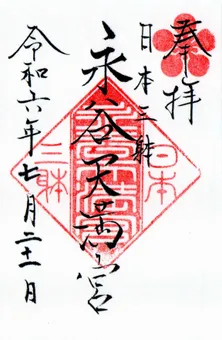 奉拝
日本三躰
永谷天満宮
令和六年七月二十一日
日本
三躰